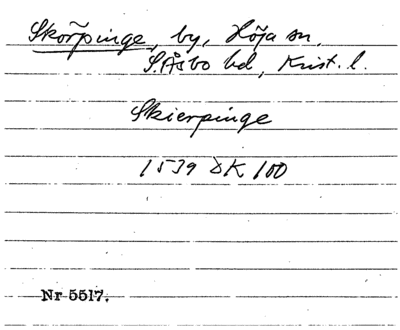 Skörpinge, by, Höja sn,
S. Åsbo hd, Krist. l.
Skierpinge
1539 DK 100
Nr 5517.